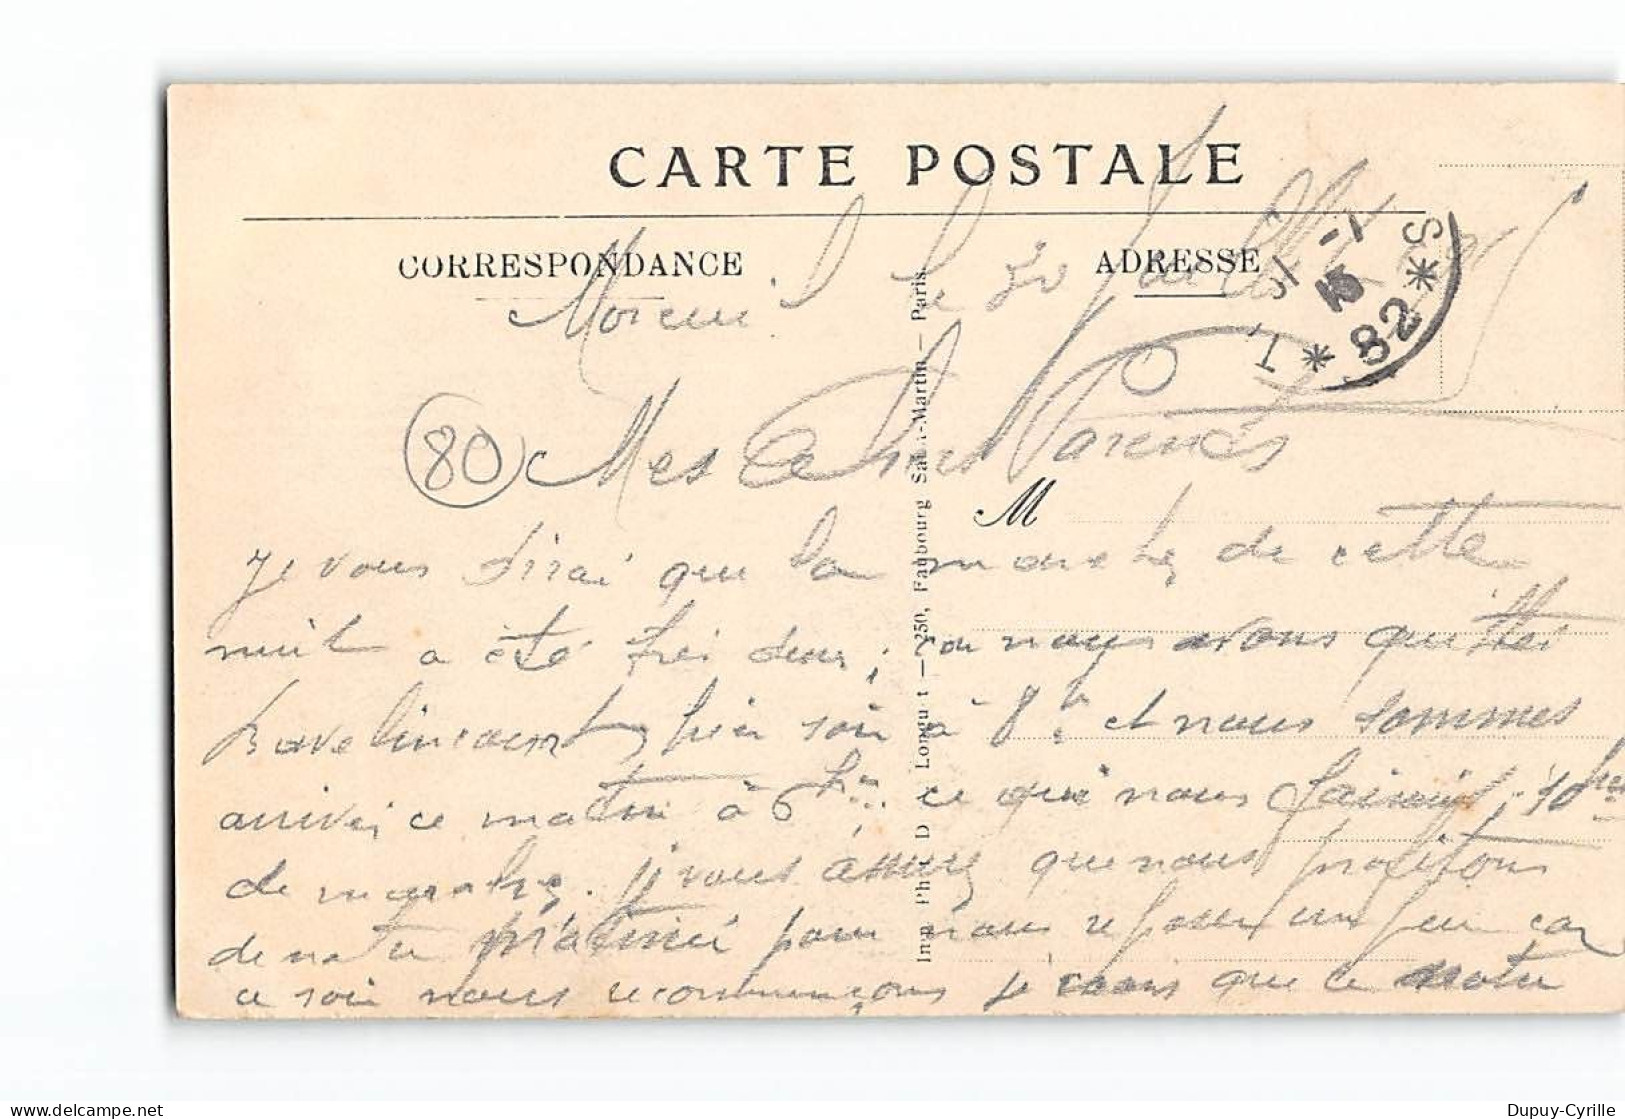 CARTE POSTALE
CORRESPONDANCE
ADRESSE
Moreuil le 30 Juillet
31 -7
15
T * 82 * S
80
Mes Chers Parents
M
Je vous dirai que la marche de cette
nuit a été très dure, car nous avons quittés
Bavelincourt hier soir à 8h. et nous sommes
arrivés ce matin à 6h ce qui nous faisait 10 hres
de marche. Je vous assure que nous profitons
de notre matinée pour nous reposer un peu car
ce soir nous recommençons je crois que ce notre
Imp. Phot. D. Longuet — 250, Faubourg Saint-Martin — Paris
Dupuy-Cyrille